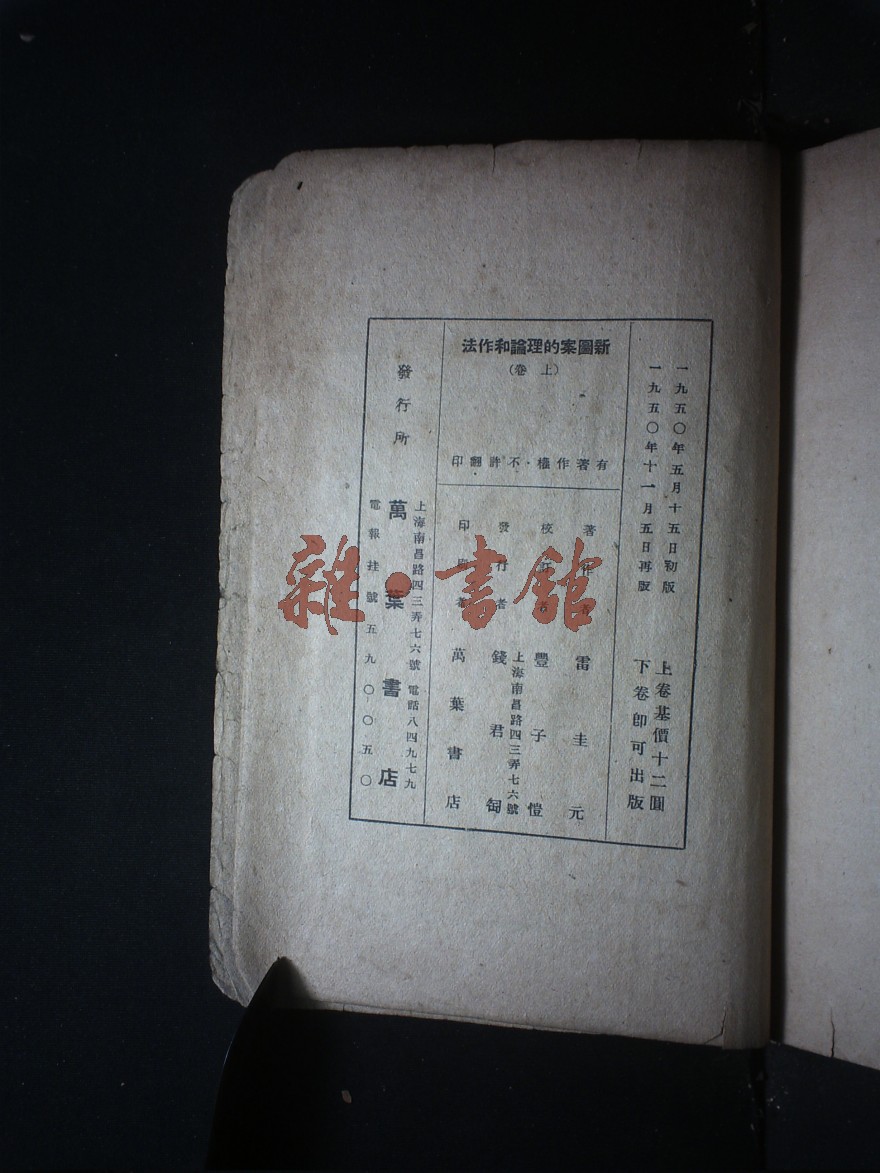 一九五〇年五月十五日初版
一九五〇年十一月五日再版
上卷基價十二圓
下卷卽可出版
新圖案的理論和作法
（上卷）
有著作權・不許翻印
著作者 雷圭元
校訂者 豐子愷
發行者 錢君匋
上海南昌路四三弄七六號
印刷者 萬葉書店
發行所
上海南昌路四三弄七六號 電話八四九七九
萬葉書店
電報挂號五九〇〇五〇
雜・書館